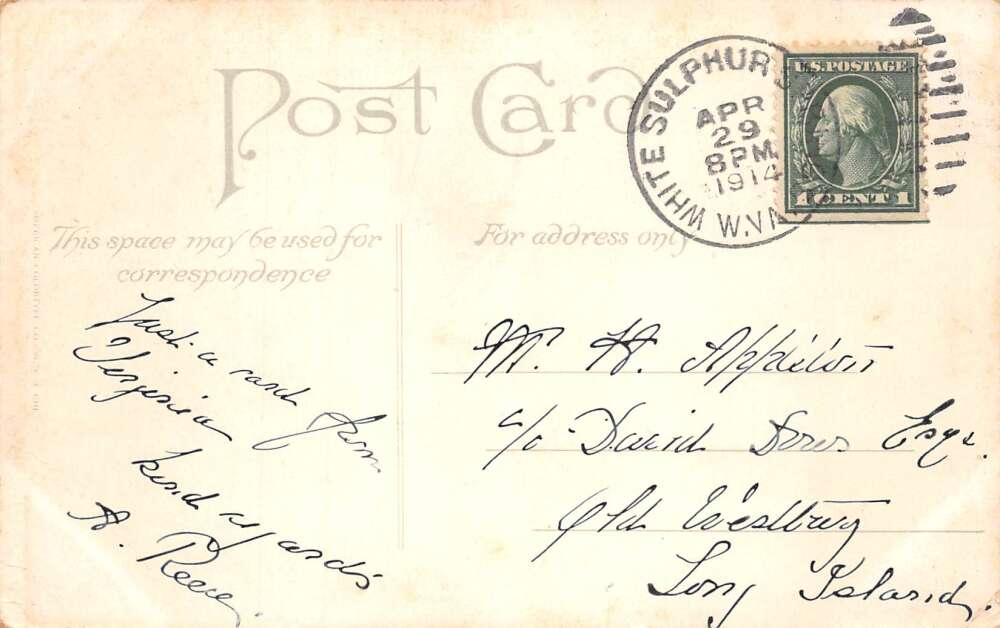 Post Card
WHITE SULPHUR S
W.VA.
APR
29
8 PM
1914
U.S. POSTAGE
1 CENT 1
This space may be used for
correspondence
For address only
Just a card from
Virginia
kind regards
A. Reeve.
M. H. Appleton
c/o David Dows Esq.
Old Westbury
Long Island.